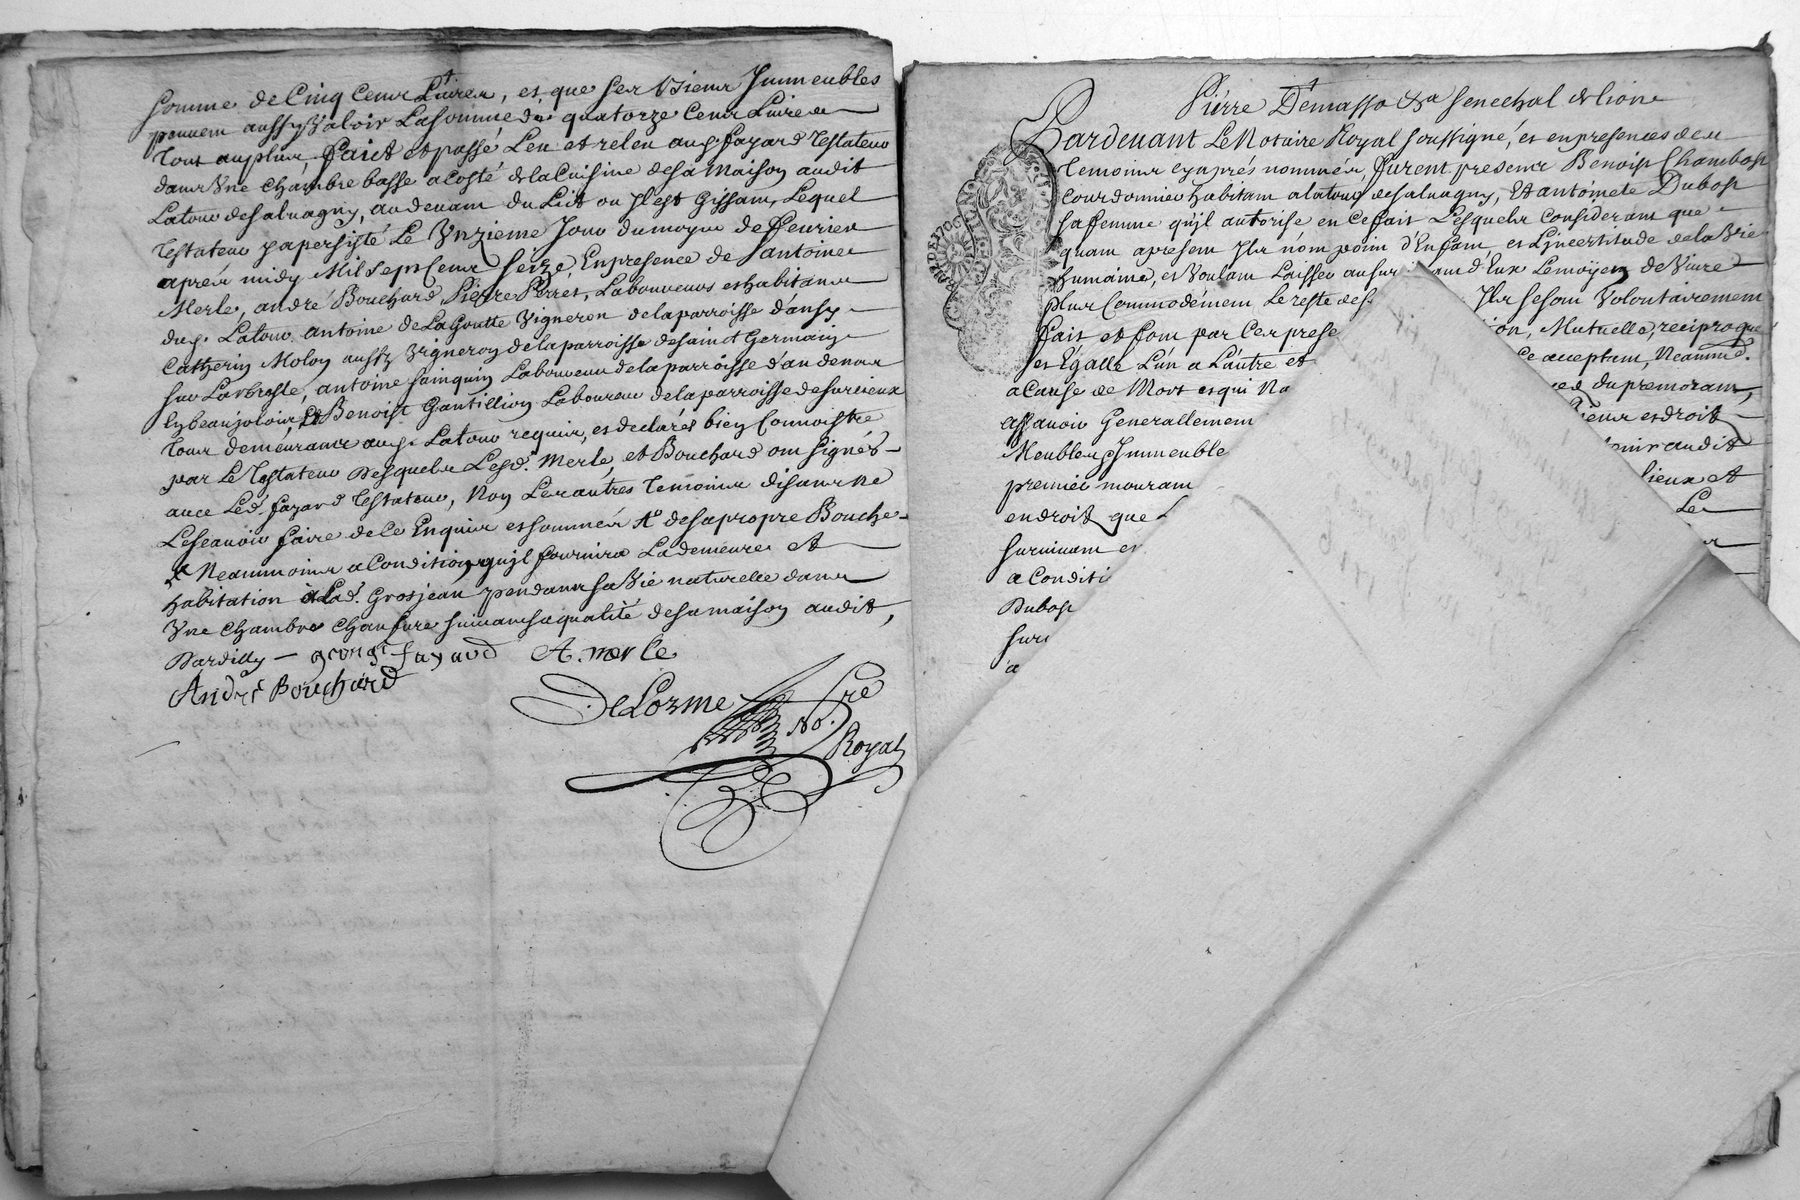 Somme de Cinq Cens Livres, et que ses biens Immeubles
peuvent aussy valoir La somme de quatorze Cens Livres
Tout au plus, faict et passé Leu et releu aud. fayard Testateur
dans Une chambre basse a costé de la Cuisine de sa Maison audit
Latour de salvagny, au devant du Lict ou Il est Gissant, Lequel
Testateur y a persisté Le Unzieme Jour du moys de fevrier
aprés midy Mil sept Cens seize, En presence de S. antoine
Merle, andré Bouchard, Pierre Perret, Laboureurs et habitans
dud. Latour, antoine de La Goutte Vigneron de la parroisse d'ansy
Catherin Moloy aussy vigneron de la parroisse de saint Germain
sur Larbresle, antoine sainquin Laboureur de la parroisse d'audenas
En beaujolois, Et Benoist Gantillion Laboureur de la parroisse de surcieux
Tous demeurans aud. Latour requis, et declarés bien Connoistre
par Le Testateur Desquels Lesd. Merle, et Bouchard ont signés
avec Led. fayard Testateur, Non Les autres Temoins disans ne
Le scavoir faire de ce Enquis et sommés + de sa propre Bouche
+ Neammoins a Condition qu'il fournira La demeure et
habitation à Lad. Grosjean pendans sa Vie naturelle dans
Une chambre chaufure suivant sa qualité de sa maison audit,
Dardilly — fayard A. merle
André Bouchard
DeLorme No.re
Royal
Pierre Demasso &a Senechal de lion
Pardevant Le Notaire Royal soussigné, et en presences des
Temoins cy aprés nommés, furent presens Benoist Chambost
Courdonnier habitant a latour de salvagny, Et antoinete Dubost
sa femme qu'il autorise en ce fait Lesquels Considerant que
quant a present Ils n'ont point d'Enfant, et L'incertitude de la Vie
humaine, et Voulant Laisser au sur ant d'Eux Le moyen de Vivre
plus Commodément Le reste de s Ils se sont Volontairement
fait et font par Ces prese ion, Mutuelle, reciproque
et Egalle L'un a L'autre et ce acceptant, Neammo.
a Cause de Mort et qui N du premorant,
assavoir Generallement biens et droit
Meubles, Immeuble audit
premier mourant lieux et
en droit que Le
survivant et
a Conditi
Dubost
surv
a